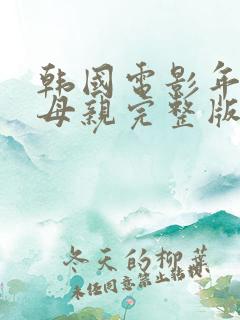 韩国电影年
母亲完整版
冬天的柳葉
未经同意禁止转载